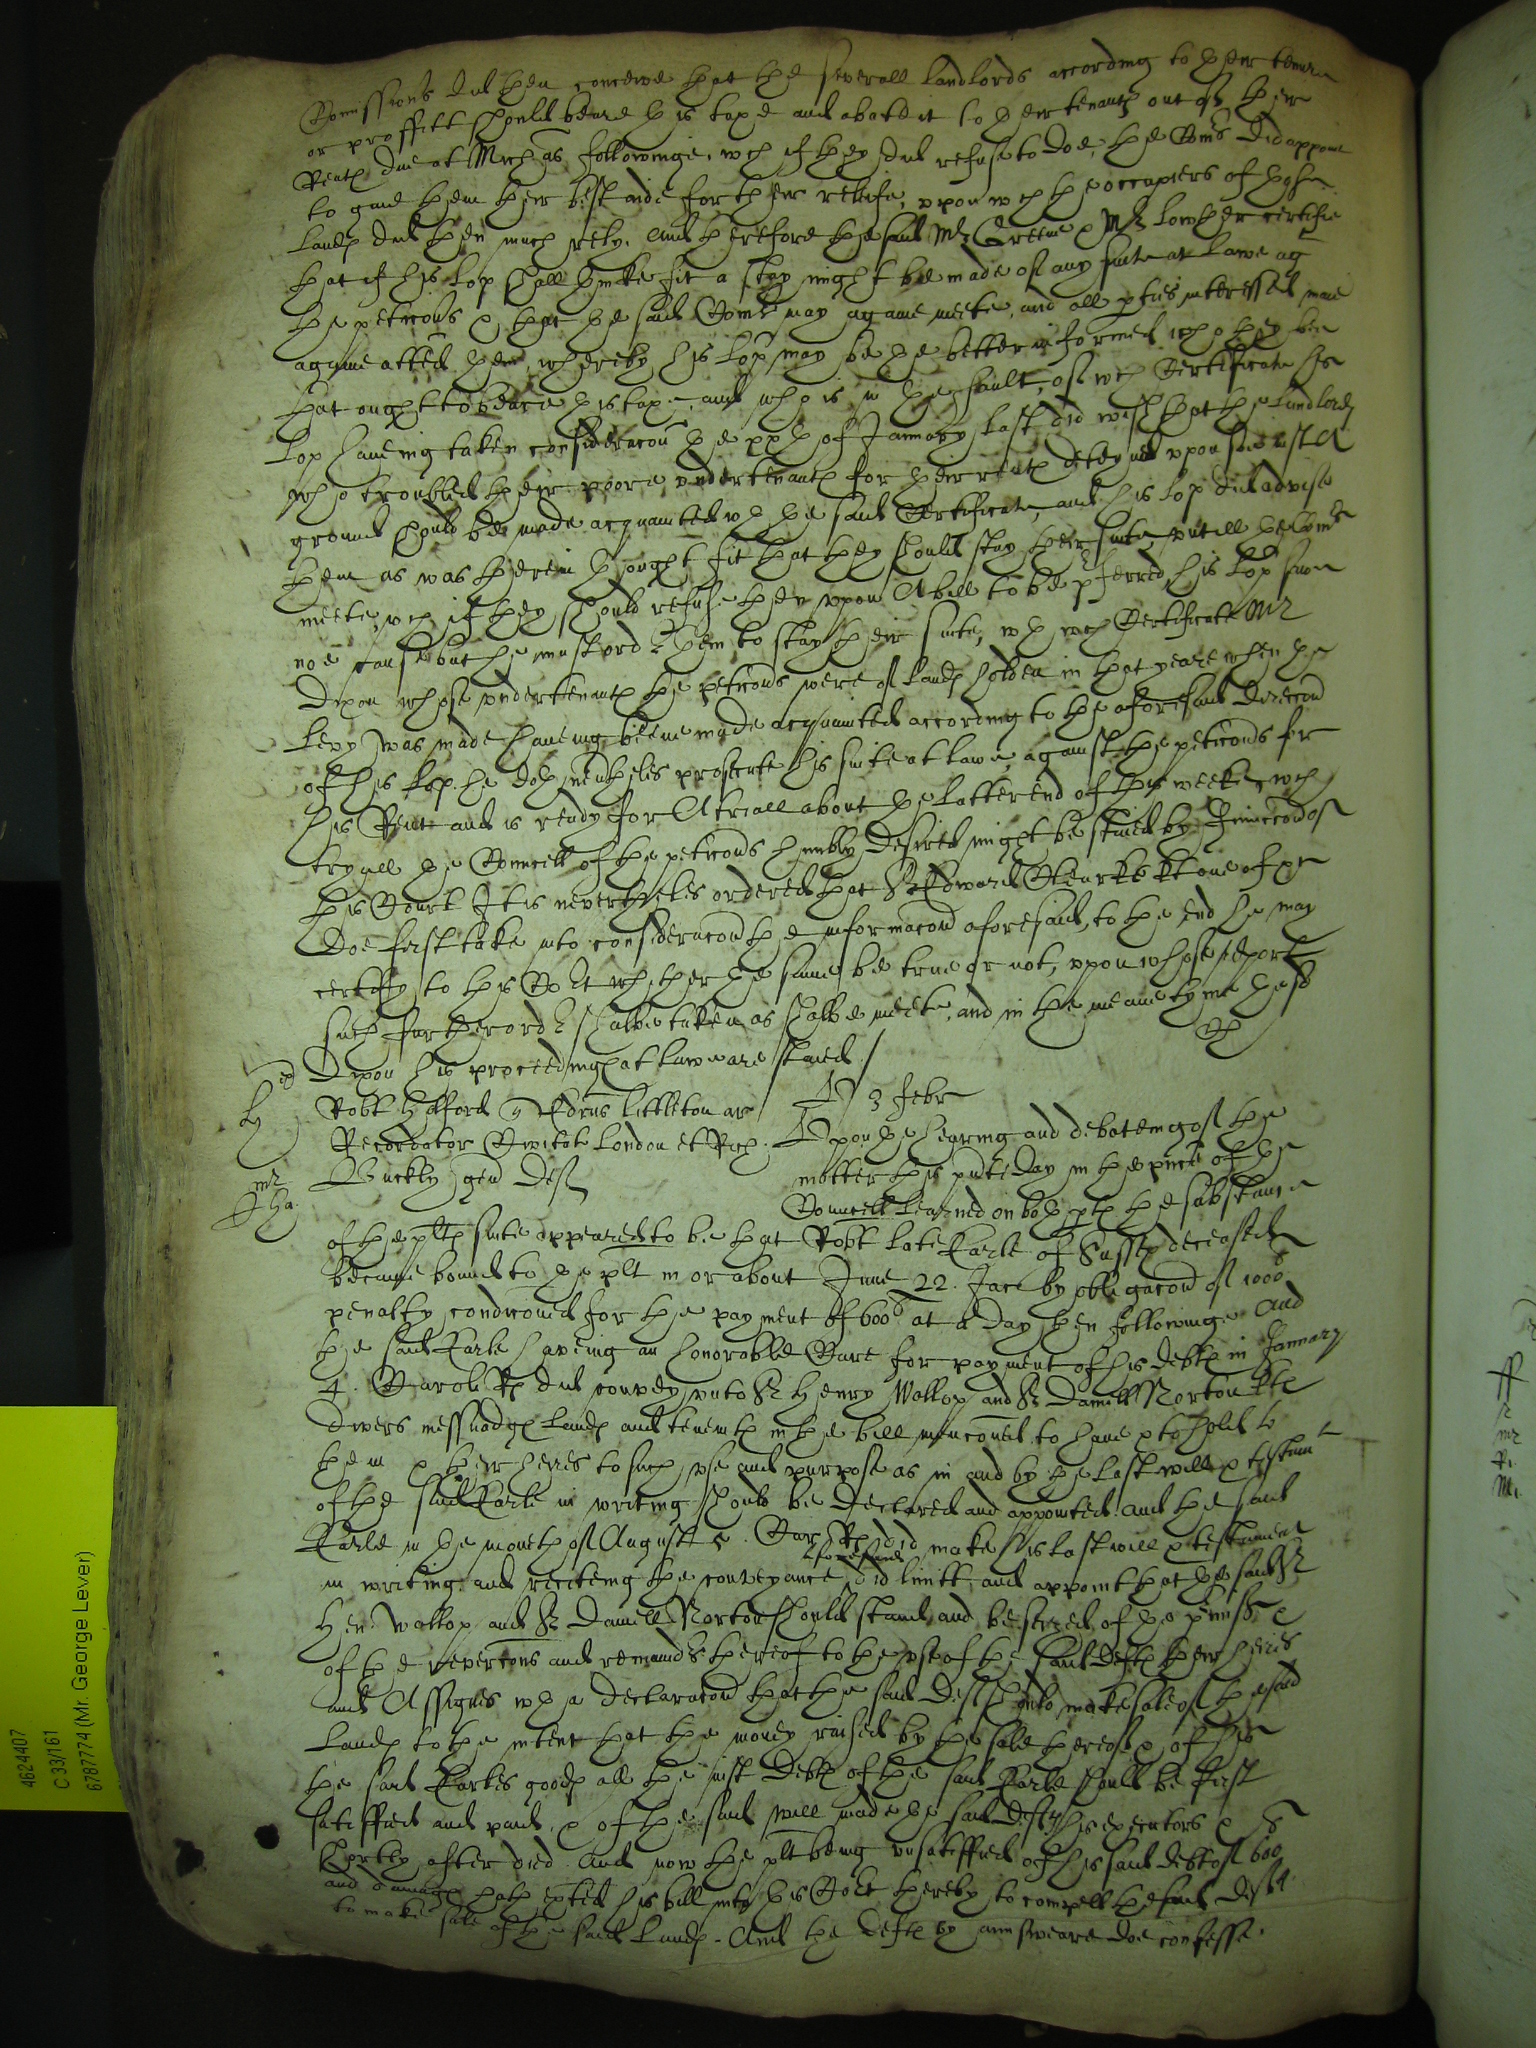 Comissions did then conceive that the severall landlords according to their tenure
or proffitt should beare this taxe and abate it to their tenantes out of their
Rentes due at Mich[aelm]as followinge, wch if they did refuse to doe, the Comrs did appoint
to give them their best aide for their reliefe, upon wch the occupiers of those
landes did then much rely. And therefore the said Mr Greene & Mr Lowther certifie
that if his Lop shall thinke fit a stay might be made of any suite at lawe agt
the petrcons & that the said Comrs may againe meete, and all pties interessed maie
againe attend them, whereby his Lop may be the better informed who they bee
that ought to beare this taxe, and who is in the fault, of wch Certificate his
Lop haveing taken consideracon the xxth of January last did wish that the landlordes
who troubled their poore undertenantes for their rentes deteyned upon soe just a
ground should bee made acquainted wth the said Certificate, and his Lop did advise
them as was therein thought fit that they should stay their suites, untill the Comrs
meete, wch if they should refuse then upon A bill to be pferred his Lop sawe
noe cause but he must order them to stay their suite, wth wch Certificate Mr
Dixon whose undertenantes the petrcons were of landes holden in that yeare when the
levy was made haveing beene made acquainted according to the aforesaid direccon
of his Lop he doth nevtheles prosecute his suite at lawe against the petrcons for
his Rent and is ready for A triall about the latter end of this weeke, wch
tryall the Councell of the petrcons humbly desired might be staied by Iniuccon of
this Court It is neverthelles ordered that Sr Edward Clearke kt one of &c
doe first take into consideracon the informacon aforesaid, to the end he may
certify to this Cort whether the same be true or not, upon whose report
such further order shalbe taken as shalbe meete, and in the meane tyme the sd
Dixon his proceedinges at law are staied /
Robt Holford & Edrus Littleton ar
Recordator Civitat London et Rich:
Buckly gen Def
3 Febr
Upon the hearing and debateing of the
matter this pnte day in the pnce of the
Councell learned on both ptes the substance
of the pltes suite appeared to be that Robt late Earle of Sussex deceased
became bound to the plt in or about June 22. Jac by obligacon of 1000l
penalty condiconed for the payment of 600l at a day then following. And
the said Earle haveing an honorable Care for payment of his debtes in January
4. Caroli Rs did convey unto Sr Henry Wallop and Sr Daniell Norton ktes
divers messuadges landes and tenemtes in the bill menconed to have & to hold to
them & their heires to such use and purpose as in and by the last will & testamt
of the said Earle in writing should be declared and appointed. And the said
Earle in the moneth of August 5. Car Rs did make his last will & testament
in writing and reciteing the conveyance aforesaid did limitt and appoint that the said Sr
Hen: Wallop and Sr Daniell Norton should stand and be seized of the pmisses &
of the revercons and remaindrs thereof to the use of the said Deftes their heires
and Assignes wth a declaracon that the said Deftes should make sale of the said
landes to the intent that the money raised by the sale thereof & of
the said Earles goodes all the iust debtes of the said Earle should be first
satisffied and paid. & of the said will made the said Deftes his executors &
shortly after died. And now the plt being unsatisffied of his said debt of 600l
and damages hath exhted his bill into this Cort thereby to compell the said Deftes
to make sale of the said landes. And the Deftes by aunsweare doe confesse
4624407
C 33/161
6787774 (Mr. George Lever)